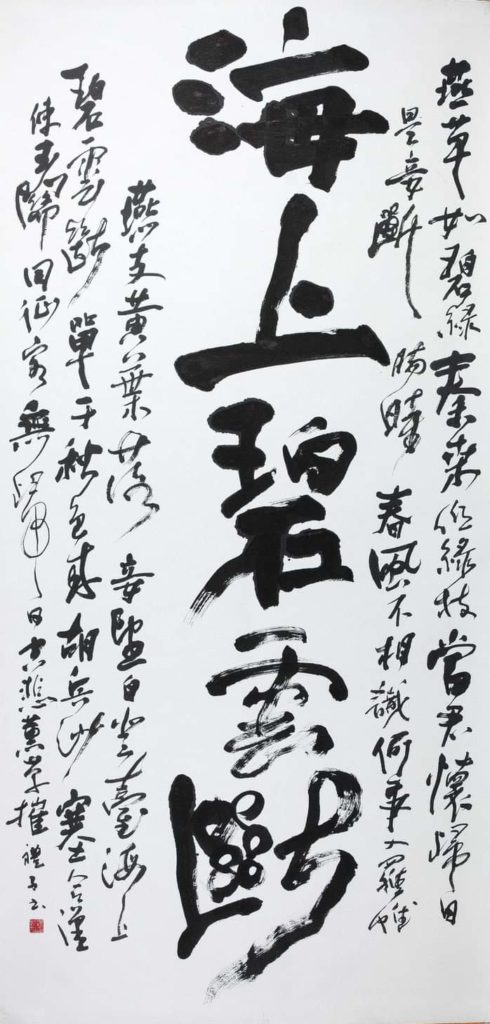 燕草如碧絲秦桑低綠枝當君懷歸日
是妾斷腸時春風不相識何事入羅帷
海上碧雲斷
燕支黃葉落妾望白登臺海上
碧雲斷單于秋色來胡兵沙塞合漢
使玉關回征客無歸日空悲蕙草摧